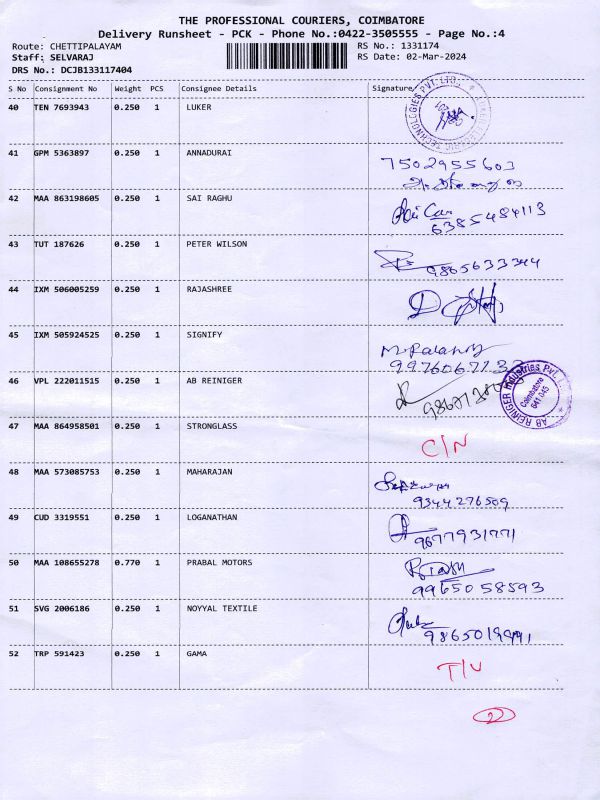 THE PROFESSIONAL COURIERS, COIMBATORE
Delivery Runsheet - PCK - Phone No.:0422-3505555 - Page No.:4
Route: CHETTIPALAYAM RS No.: 1331174
Staff: SELVARAJ RS Date: 02-Mar-2024
DRS No.: DCJB133117404
S No Consignment No Weight PCS Consignee Details Signature
40 TEN 7693943 0.250 1 LUKER
41 GPM 5363897 0.250 1 ANNADURAI
7502955603
42 MAA 863198605 0.250 1 SAI RAGHU
6385484113
43 TUT 187626 0.250 1 PETER WILSON
9865633344
44 IXM 506005259 0.250 1 RAJASHREE
45 IXM 505924525 0.250 1 SIGNIFY
46 VPL 222011515 0.250 1 AB REINIGER
AB REINIGER Industries Pvt.
Coimbatore
641 045
47 MAA 864958501 0.250 1 STRONGLASS
C/N
48 MAA 573085753 0.250 1 MAHARAJAN
9344276509
49 CUD 3319551 0.250 1 LOGANATHAN
9677931771
50 MAA 108655278 0.770 1 PRABAL MOTORS
9965058593
51 SVG 2006186 0.250 1 NOYYAL TEXTILE
52 TRP 591423 0.250 1 GAMA
2